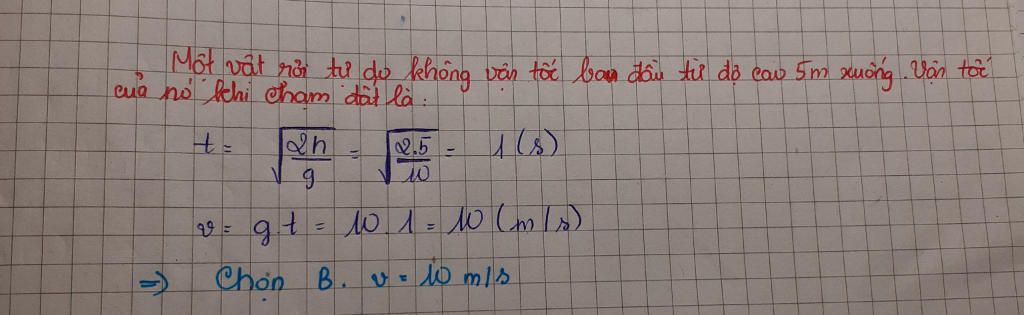 Một vật rơi tự do không vận tốc ban đầu từ độ cao 5m xuống. Vận tốc
của nó khi chạm đất là:
t = √(2h/g) = √(2.5/10) = 1 (s)
v = g.t = 10.1 = 10 (m/s)
=> Chọn B. v = 10 m/s